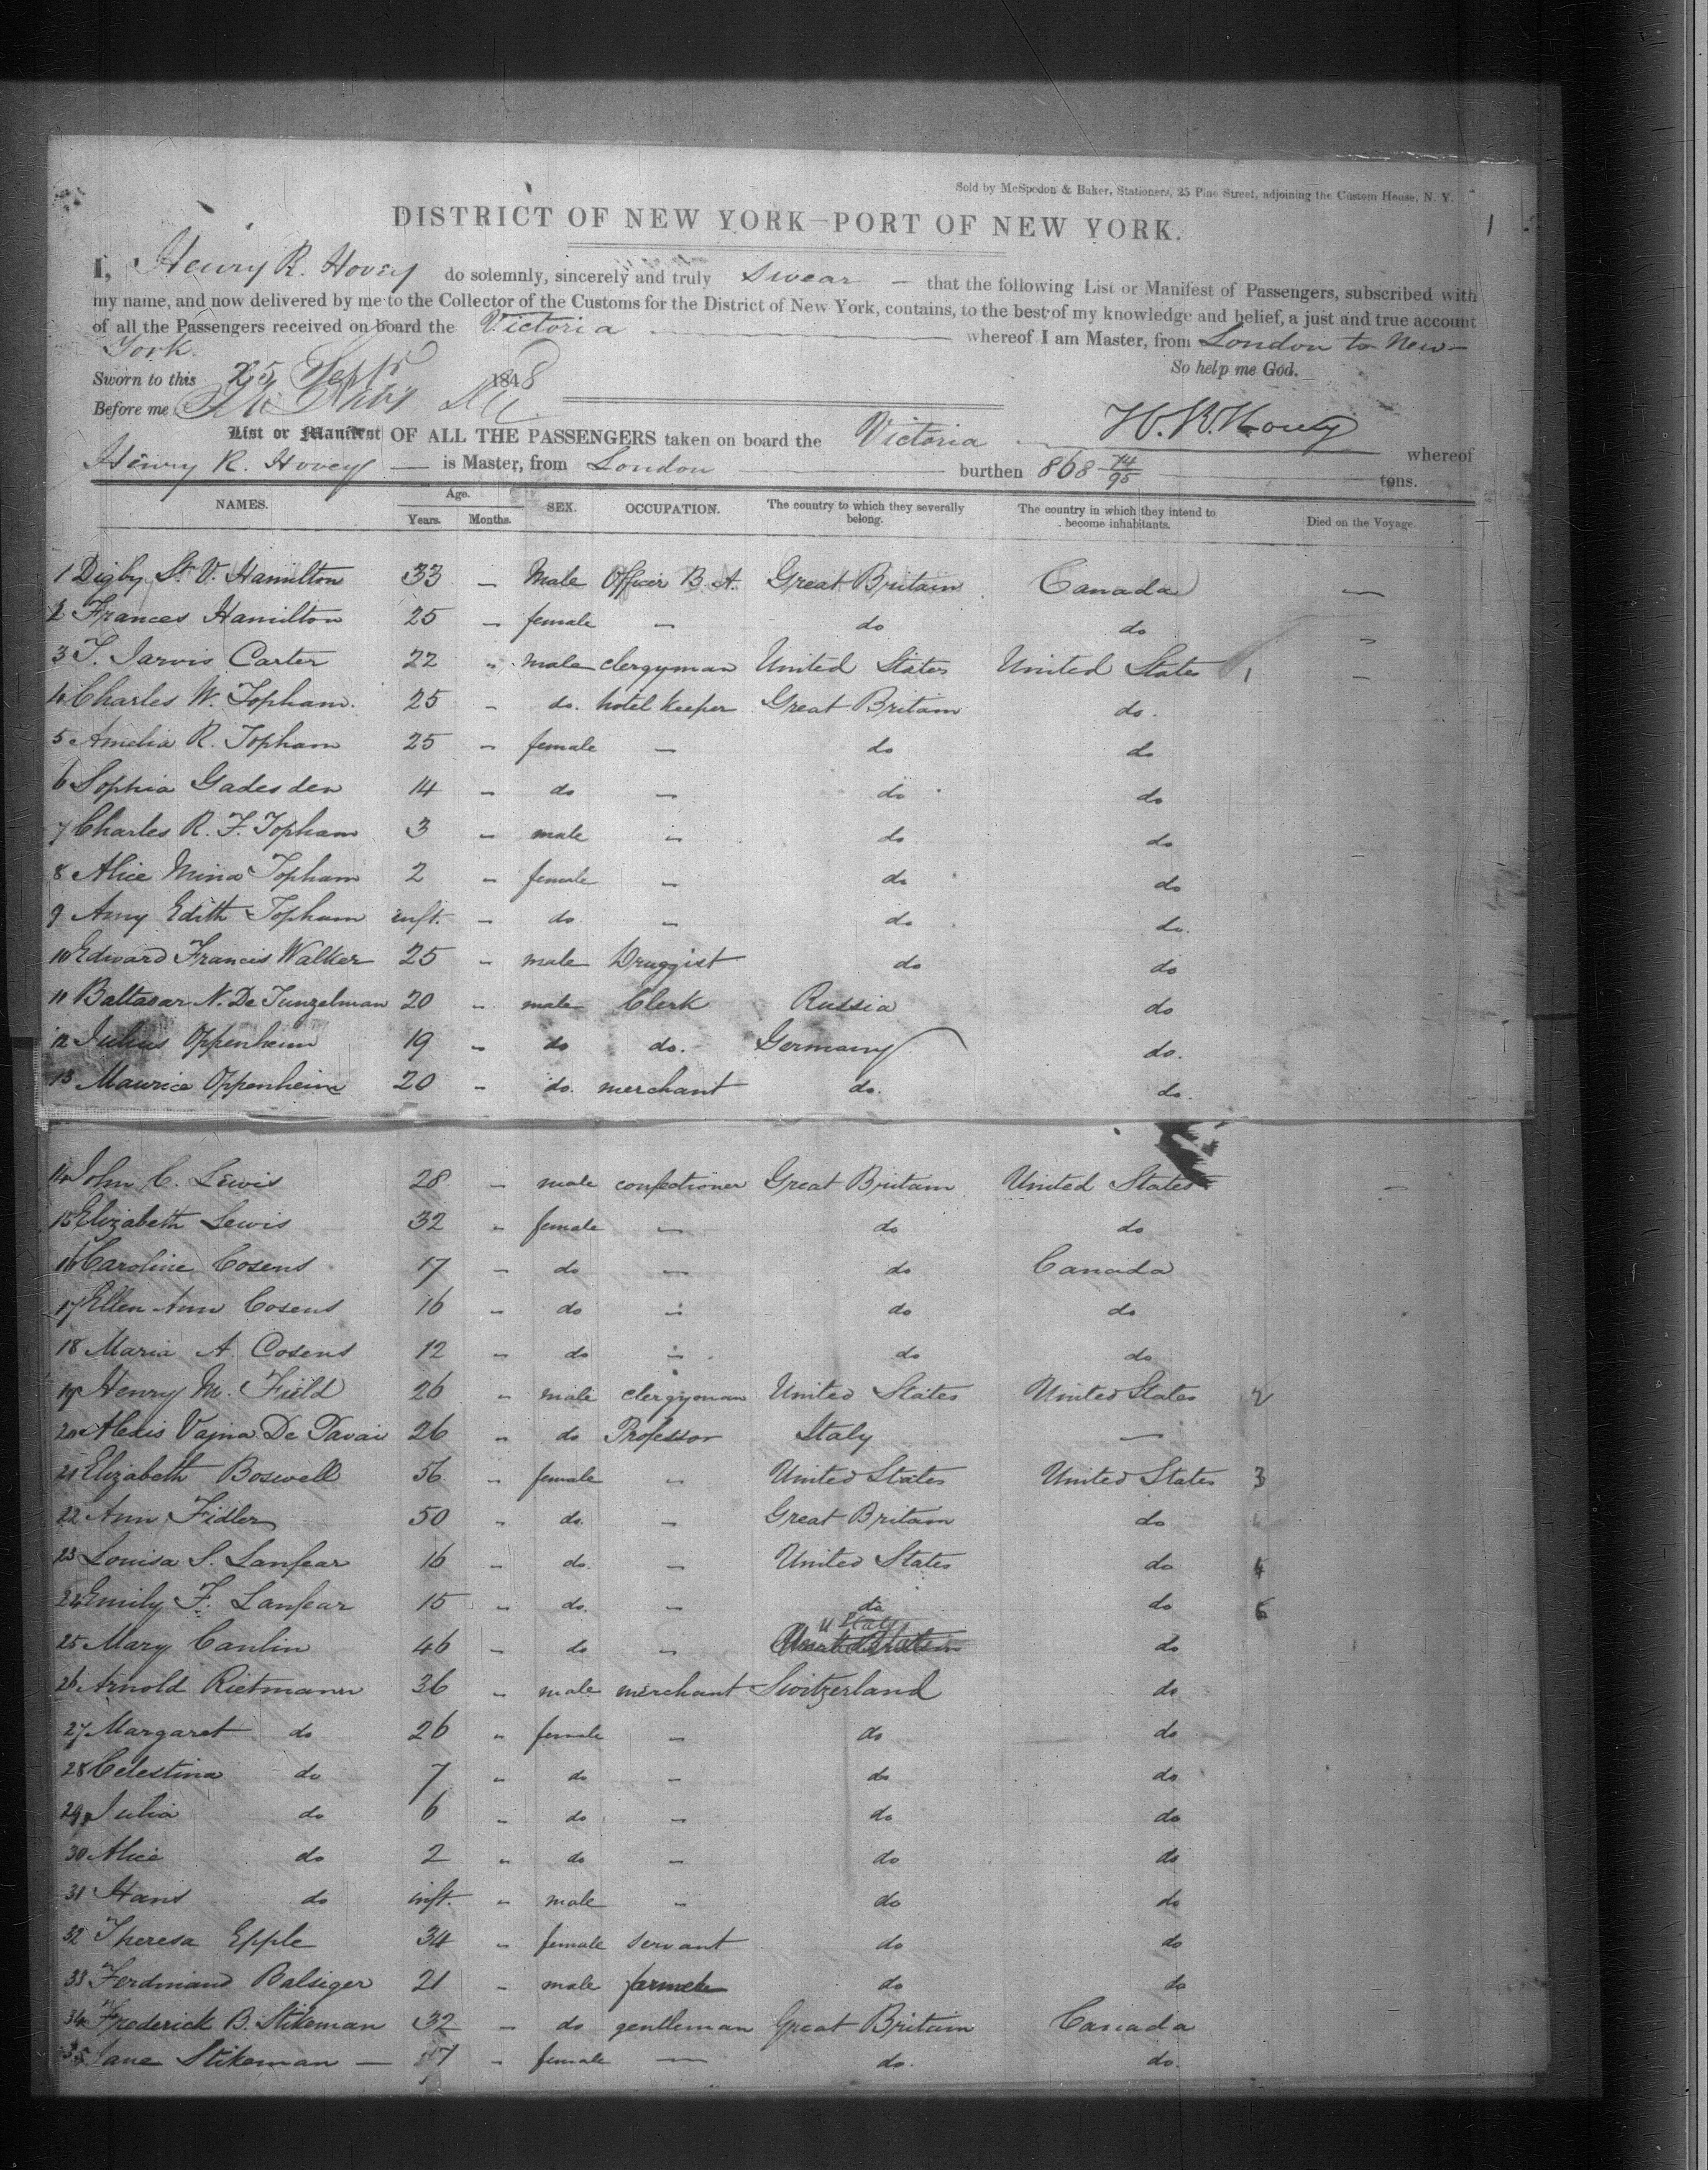 Sold by McSpedon & Baker, Stationers, 25 Pine Street, adjoining the Custom House, N. Y.
DISTRICT OF NEW YORK—PORT OF NEW YORK.
1
I, Henry R. Hovey do solemnly, sincerely and truly swear — that the following List or Manifest of Passengers, subscribed with
my name, and now delivered by me to the Collector of the Customs for the District of New York, contains, to the best of my knowledge and belief, a just and true account
of all the Passengers received on board the Victoria — whereof I am Master, from London to New-
York.
So help me God.
Sworn to this 25 Sept 1848
Before me
H. R. Hovey
List or Manifest OF ALL THE PASSENGERS taken on board the Victoria — whereof
Henry R. Hovey — is Master, from London — burthen 868 74/95 — tons.
NAMES. Age. Years. Months. SEX. OCCUPATION. The country to which they severally belong. The country in which they intend to become inhabitants. Died on the Voyage.
1 Digby St. V. Hamilton 33 – Male Officer B. A. Great Britain Canada —
2 Frances Hamilton 25 – female – do do –
3 T. Jarvis Carter 22 " male clergyman United States United States 1 –
4 Charles W. Topham. 25 – do. hotel keeper Great Britain do.
5 Amelia R. Topham 25 – female – do do
6 Sophia Gadesden 14 – do – do do
7 Charles R. F. Topham 3 – male – do do
8 Alice Mina Topham 2 – female – do do
9 Amy Edith Topham inft. – do – do do.
10 Edward Francis Walker 25 – male Druggist do do
11 Baltasar N. De Tunzelman 20 – male Clerk Russia do
12 Julius Oppenheim 19 – do do. Germany do.
13 Maurice Oppenheim 20 – do. merchant do. do.
14 John C. Lewis 28 – male confectioner Great Britain United States –
15 Elizabeth Lewis 32 – female – do do
16 Caroline Cosens 17 – do – do Canada
17 Ellen Ann Cosens 16 – do – do do
18 Maria A. Cosens 12 – do – do do
19 Henry M. Field 26 – male clergyman United States United States 2
20 Alexis Vajna De Pavai 26 – do Professor Italy —
21 Elizabeth Boswell 56 – female – United States United States 3
22 Ann Fidler 50 – do. – Great Britain do
23 Louisa S. Lanfear 16 – do. – United States do 4
24 Emily F. Lanfear 15 – do. – do do 5
25 Mary Canlin 46 – do – U States do
26 Arnold Rietmann 36 – male merchant Switzerland do
27 Margaret do 26 – female – do do
28 Celestina do 7 – do – do do
29 Julia do 6 – do – do do
30 Alice do 2 – do – do do
31 Hans do inft. – male – do do
32 Theresa Epple 34 – female servant do do
33 Ferdinand Balsiger 21 – male do do
34 Frederick B. Stikeman 32 – do gentleman Great Britain Canada
35 Jane Stikeman — 17 – female — do. do.